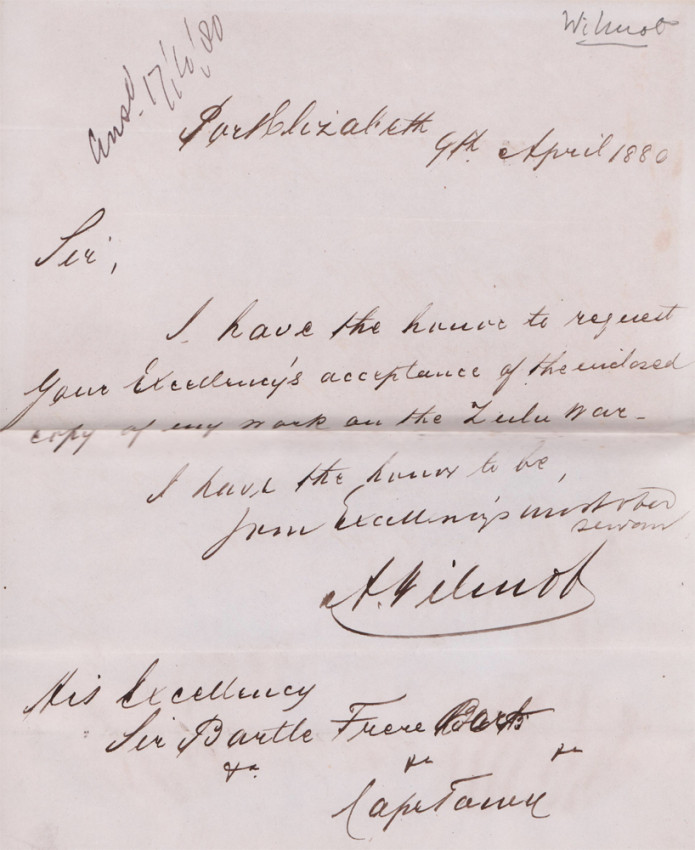 Wilmot
Ansd. 17/10/80
Port Elizabeth
9th April 1880
Sir,
I have the honor to request
Your Excellency's acceptance of the enclosed
copy of my work on the Zulu War.
I have the honor to be,
Your Excellency's most obed
servant
A. Wilmot
His Excellency
Sir Bartle Frere Bart
&c. &c &c
Cape Town